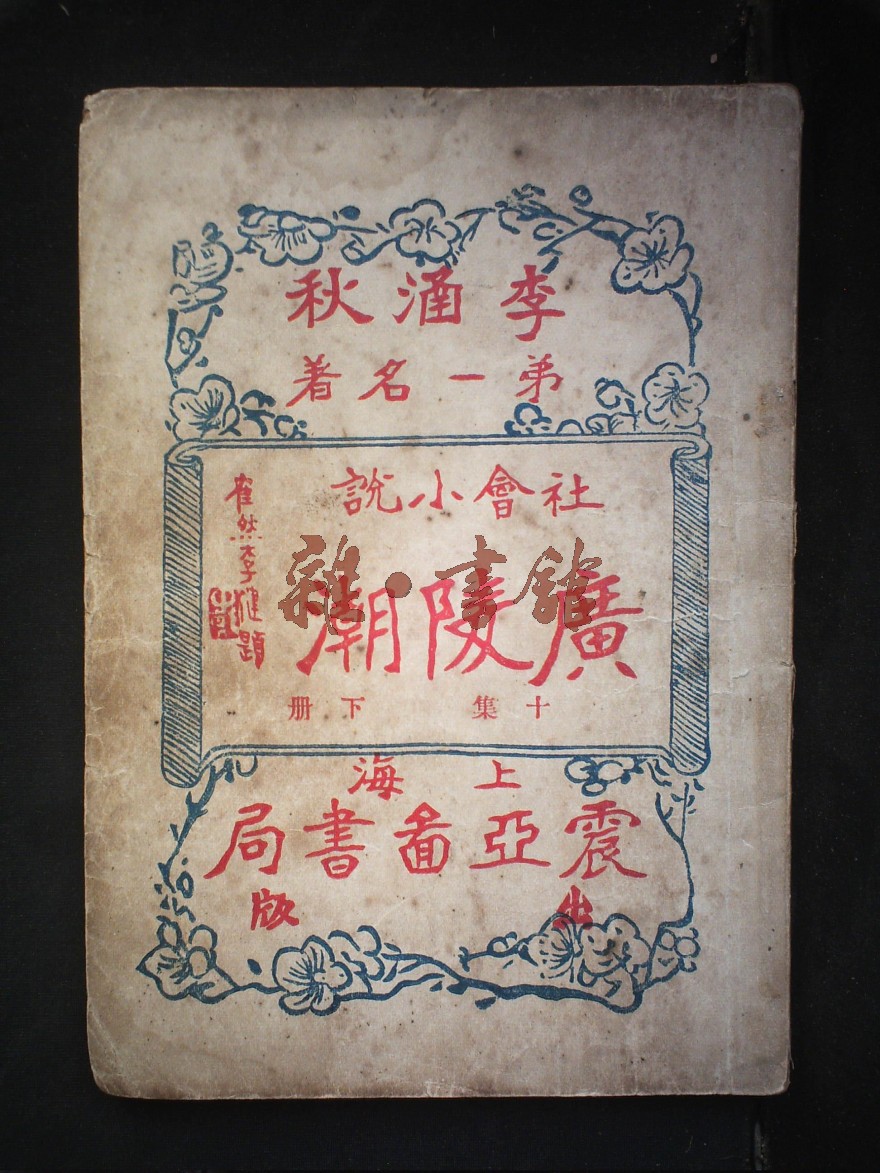 李涵秋
弟一名著
社會小說
廣陵潮
十集 下册
隺然李健題
上海
震亞啚書局
出版
雜·書館